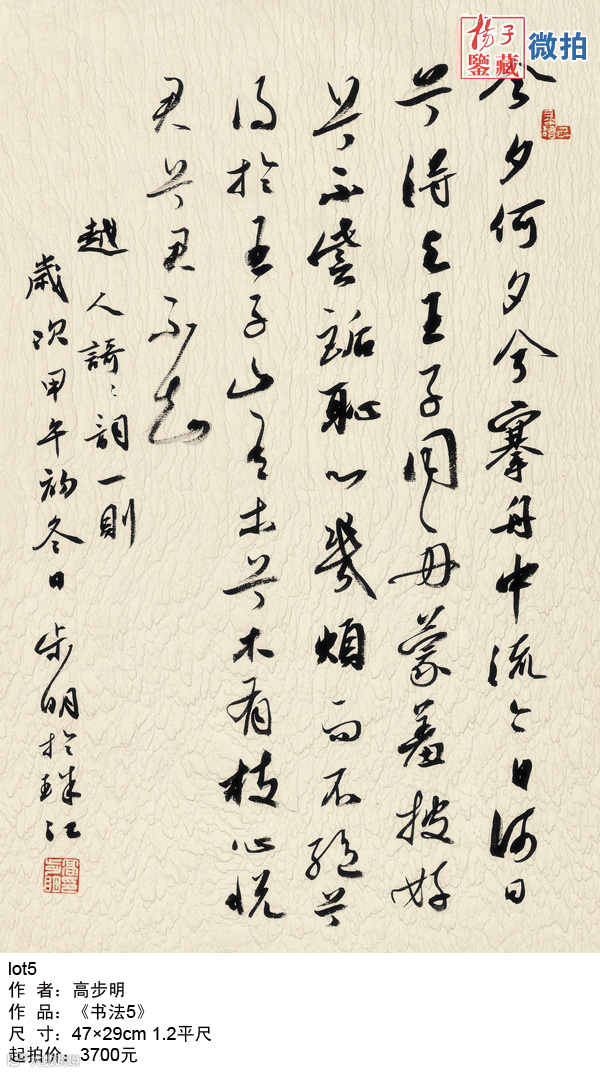 杨子
鑒藏
微拍
今夕何夕兮搴舟中流今日何日
兮得与王子同舟蒙羞披好
兮不訾詬恥心幾煩而不絕兮
得於王子山有木兮木有枝心悦
君兮君不知
越人謌〻詞一則
歲次甲午初冬日 步明於珠江
lot5
作 者：高步明
作 品：《书法5》
尺 寸：47×29cm 1.2平尺
起拍价：3700元